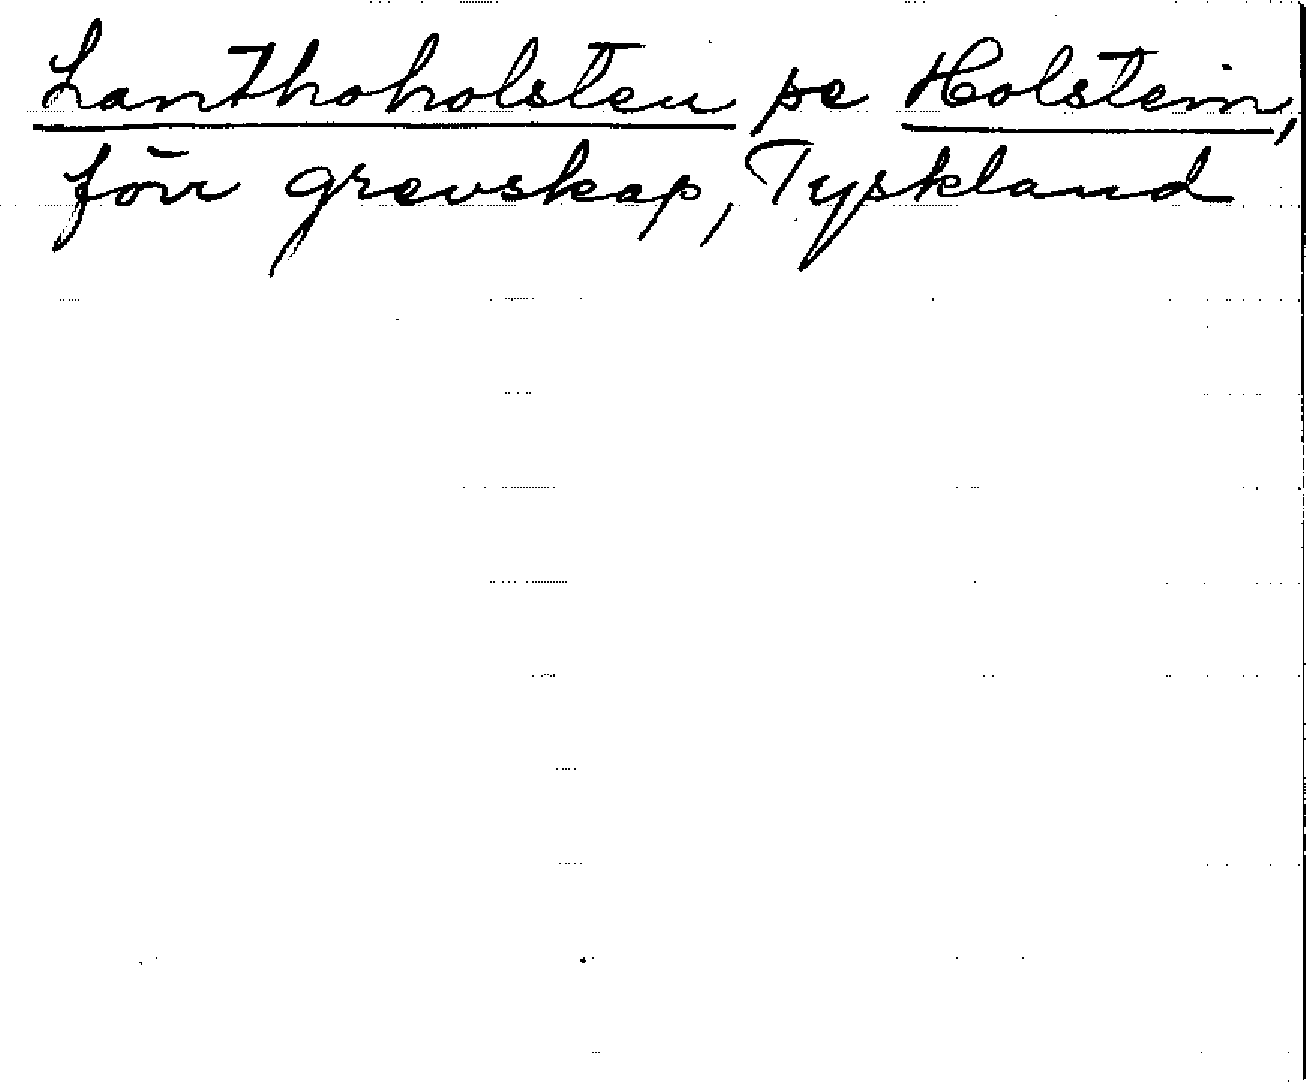 Lanthoholsten se Holstein,
förr grevskap, Tyskland